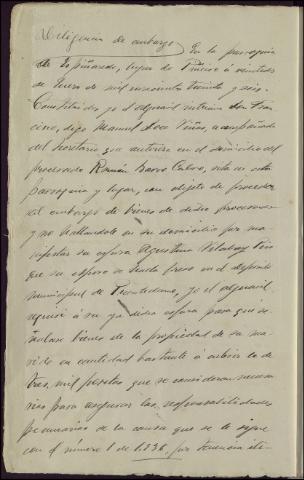 Diligencia de embargo. En la parroquia
de Espiñaredo, lugar de a veintidos
de Enero de mil novecientos treinta y seis.
Constituido yo el alguacil interino don
digo Manuel Viñas, acompañado
del Secretario que autoriza en el domicilio del
procesado Román Barro sito en esta
parroquia y lugar, con objeto de proceder
al embargo de bienes de dicho procesado
y no hallandole en su domicilio por ma-
nifestar su esposa Agustina
que su esposo se halla preso en el deposito
municipal de Puentedeume, yo el alguacil
requirí a su ya dicha esposa para que se-
ñalase bienes de la propiedad de su ma-
rido en cantidad bastante a cubrir la de
tres mil pesetas que se consideran necesa-
rias para asegurar las responsabilidades
pecuniarias de la causa que se le sigue
con el número 1 de 1.936, por tenencia ilí-